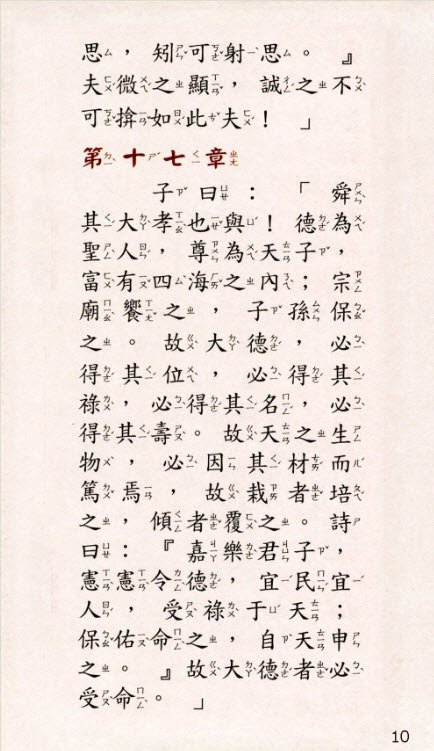 思，矧可射思。』
夫微之顯，誠之不
可揜如此夫！」
第十七章
子曰：「舜
其大孝也與！德為
聖人，尊為天子，
富有四海之內；宗
廟饗之，子孫保
之。故大德，必
得其位，必得其
祿，必得其名，必
得其壽。故天之生
物，必因其材而
篤焉，故栽者培
之，傾者覆之。詩
曰：『嘉樂君子，
憲憲令德，宜民宜
人，受祿于天；
保佑命之，自天申
之。』故大德者必
受命。」
10